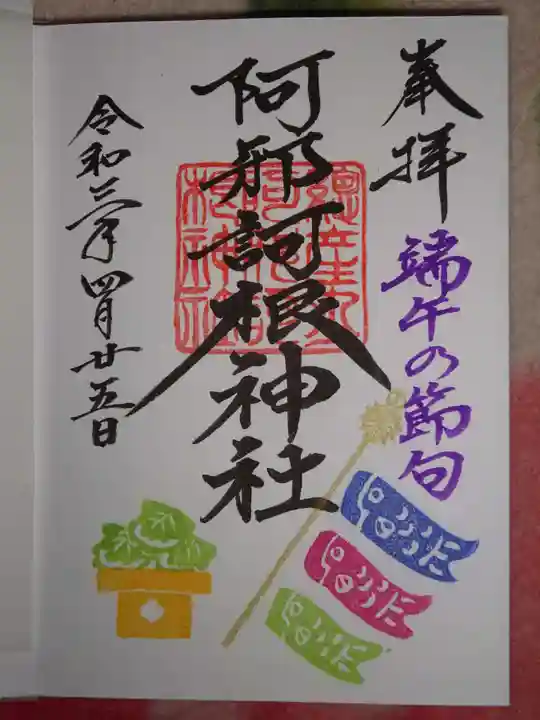 奉拝
端午の節句
阿那訶根神社
令和三年四月廿五日